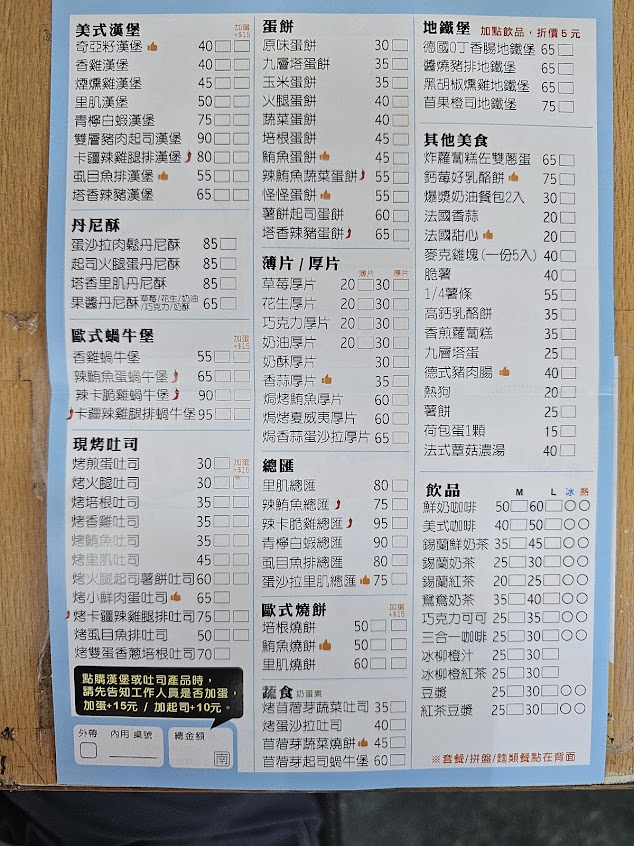 美式漢堡 加蛋+$15
奇亞籽漢堡 40
香雞漢堡 40
煙燻雞漢堡 45
里肌漢堡 50
青檸白蝦漢堡 75
雙層豬肉起司漢堡 90
卡疆辣雞腿排漢堡 80
虱目魚排漢堡 55
塔香辣豬漢堡 65
丹尼酥
蛋沙拉肉鬆丹尼酥 85
起司火腿蛋丹尼酥 85
塔香里肌丹尼酥 85
果醬丹尼酥 草莓/花生/奶油/巧克力/奶酥 65
歐式蝸牛堡 加蛋+$15
香雞蝸牛堡 55
辣鮪魚蛋蝸牛堡 65
辣卡脆雞蝸牛堡 90
卡疆辣雞腿排蝸牛堡 95
現烤吐司
烤煎蛋吐司 30 加蛋+$15
烤火腿吐司 30
烤培根吐司 35
烤香雞吐司 35
烤鮪魚吐司 35
烤里肌吐司 45
烤火腿起司薯餅吐司 60
烤小鮮肉蛋吐司 65
烤卡疆辣雞腿排吐司 75
烤虱目魚排吐司 50
烤雙蛋香蔥培根吐司 70
點購漢堡或吐司產品時,
請先告知工作人員是否加蛋,
加蛋+15元 / 加起司+10元。
外帶 內用 桌號 總金額
南
蛋餅
原味蛋餅 30
九層塔蛋餅 35
玉米蛋餅 35
火腿蛋餅 40
蔬菜蛋餅 40
培根蛋餅 45
鮪魚蛋餅 45
辣鮪魚蔬菜蛋餅 55
怪怪蛋餅 55
薯餅起司蛋餅 60
塔香辣豬蛋餅 65
薄片 / 厚片 薄片 厚片
草莓厚片 20 30
花生厚片 20 30
巧克力厚片 20 30
奶油厚片 20 30
奶酥厚片 30
香蒜厚片 35
焗烤鮪魚厚片 60
焗烤夏威夷厚片 60
焗香蒜蛋沙拉厚片 65
總匯
里肌總匯 80
辣鮪魚總匯 75
辣卡脆雞總匯 95
青檸白蝦總匯 90
虱目魚排總匯 80
蛋沙拉里肌總匯 75
歐式燒餅 加蛋+$15
培根燒餅 50
鮪魚燒餅 50
里肌燒餅 60
蔬食 奶蛋素
烤苜蓿芽蔬菜吐司 35
烤蛋沙拉吐司 40
苜蓿芽蔬菜燒餅 45
苜蓿芽起司蝸牛堡 60
地鐵堡 加點飲品,折價5元
德國QT香腸地鐵堡 65
醬燒豬排地鐵堡 65
黑胡椒燻雞地鐵堡 65
苜果橙司地鐵堡 75
其他美食
炸蘿蔔糕佐雙蔥蛋 65
鈣莓好乳酪餅 75
爆漿奶油餐包2入 30
法國香蒜 20
法國甜心 20
麥克雞塊(一份5入) 40
脆薯 40
1/4薯條 55
高鈣乳酪餅 30
香煎蘿蔔糕 35
九層塔蛋 25
德式豬肉腸 40
熱狗 20
薯餅 25
荷包蛋1顆 15
法式蘑菇濃湯 40
飲品 M L 冰 熱
鮮奶咖啡 50 60
美式咖啡 40 50
錫蘭鮮奶茶 35 45
錫蘭奶茶 25 30
錫蘭紅茶 20 25
鴛鴦奶茶 35 40
巧克力可可 25 35
三合一咖啡 25 30
冰柳橙汁 25 30
冰柳橙紅茶 25 30
豆漿 25 30
紅茶豆漿 25 30
※套餐/拼盤/麵類餐點在背面